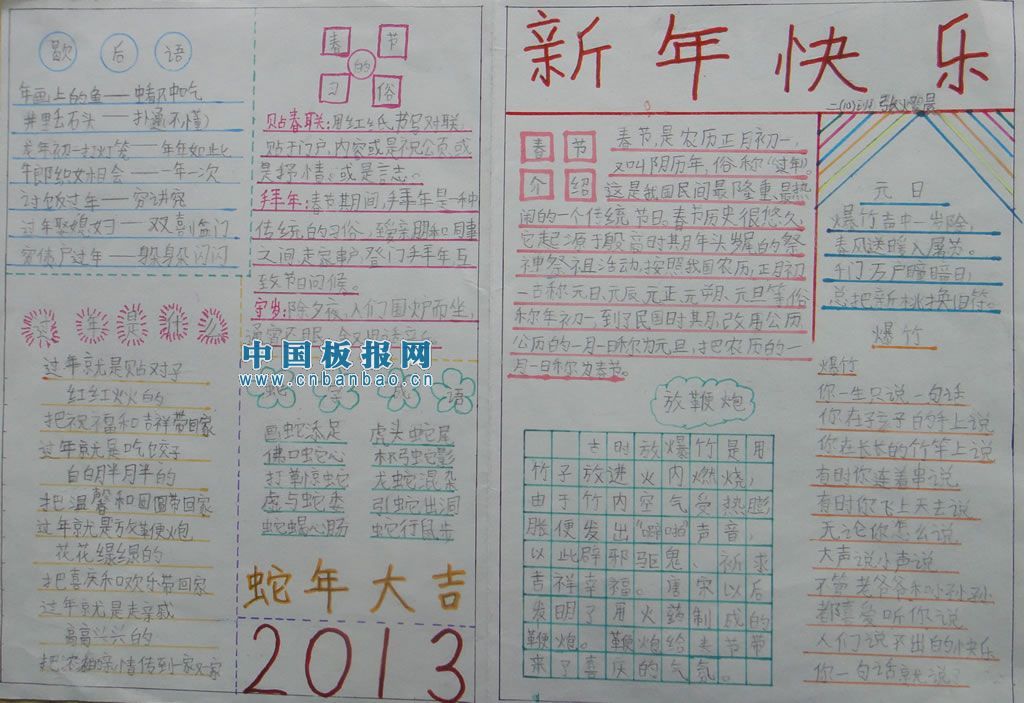 歇后语
年画上的鱼——中吃
井里丢石头——扑通(不懂)
年初一打灯笼——年年如此
牛郎织女相会——一年一次
讨饭过年——穷讲究
过年娶媳妇——双喜临门
穷债户过年——躲躲闪闪
年是什么
过年就是贴对子
红红火火的
把祝福和吉祥带回家
过年就是吃饺子
白白胖胖的
把温馨和团圆带回家
过年就是放鞭炮
花花绿绿的
把喜庆和欢乐带回家
过年就是走亲戚
高高兴兴的
把浓浓的亲情传到家家
春节
的
习俗
贴春联:用红纸书写对联,
贴于门户,内容或是祝公贡,或
是抒情。或是言志。
拜年:春节期间,拜年是一种
传统的习俗,至亲朋和同事
之间走家串户,登门拜年互
致节日问候。
守岁:除夕夜,人们围炉而坐,
通宵不眠,
中国板报网
www.cnbanbao.cn
蛇成语
画蛇添足 虎头蛇尾
佛口蛇心 杯弓蛇影
打草惊蛇 龙蛇混杂
虚与蛇委 引蛇出洞
蛇蝎心肠 蛇行鼠步
蛇年大吉
2013
新年快乐
二(10)班
春节
介绍
春节,是农历正月初一,
又叫阴历年,俗称“过年”。
这是我国民间最隆重、最热
闹的一个传统节日。春节历史很悠久,
它起源于殷商时期年头岁尾的祭
神祭祖活动,按照我国农历,正月初
一古称元日、元辰、元正、元朔、元旦等,俗
称年初一,到了民国时其月,改用公历,
公历的一月一日称为元旦,把农历的一
月一日称为春节。
元日
爆竹声中一岁除,
春风送暖入屠苏。
千门万户瞳瞳日,
总把新桃换旧符。
放鞭炮
古时放爆竹是用
竹子放进火内燃烧,
由于竹内空气受热膨
胀便发出“噼啪”声音,
以此辟邪驱鬼、祈求
吉祥幸福。唐宋以后
发明了用火药制成的
鞭炮。鞭炮给春节带
来了喜庆的气氛。
爆竹
爆竹
你一生只说一句话
你在孩子的手上说
你在长长的竹竿上说
有时你连着串说
有时你飞上天去说
无论你怎么说
大声说小声说
不管老爷爷和小孙孙
都喜爱听你说
人们说不出的快乐
你一句话就说了